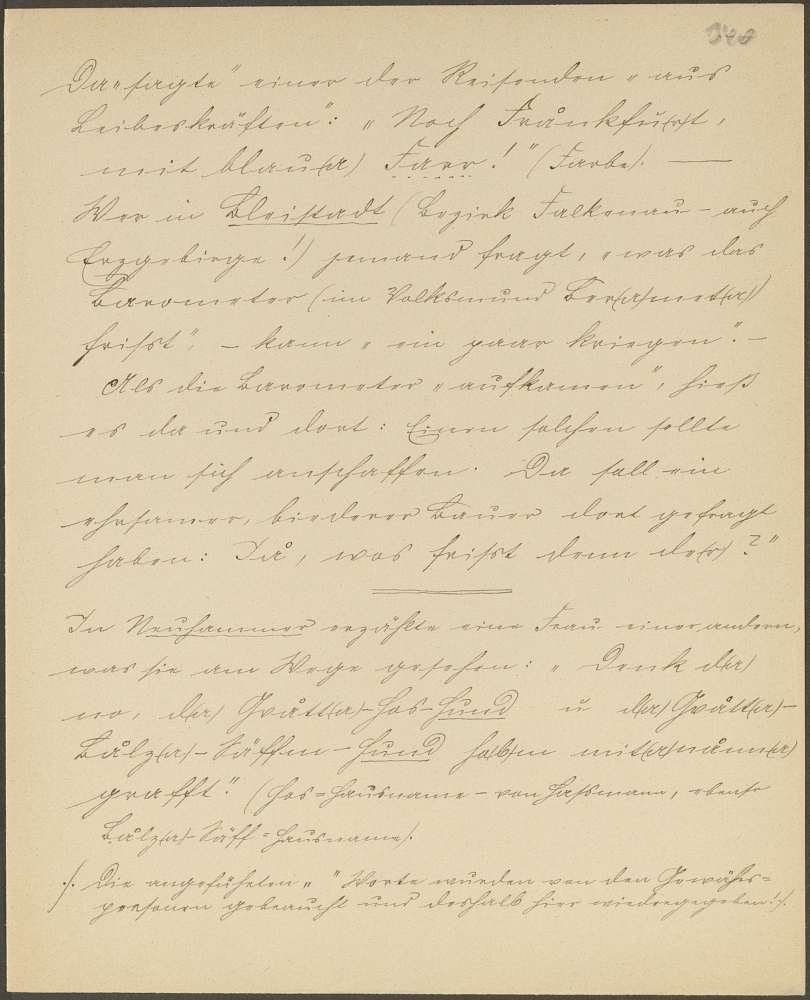 Da „sagte“ einer der Reisenden „aus
Leibeskräften“: „Noch Frånkfu(r)t,
mit blau(a) Farr!“ (Farbe). —
Wer in Bleistadt (Bezirk Falkenau – auch
Erzgebirge!) jemand fragt, „was das
Barometer (im Volksmund Ber(a)met(a))
frißt“, – kann „ein paar kriegen“. –
Als die Barometer „aufkamen“, hieß
es da und dort: Einen solchen sollte
man sich anschaffen. Da soll ein
ehrsamer, biederer Bauer dort gefragt
haben: Jå, wos frißt denn de(r)?“
In Neuhammer erzählte eine Frau einer andern,
was sie am Wege gesehen: „Denk d(a)
no, d(a) Gvått(a)-Hos-Hund u d(a) Gvått(a)-
Bålz(a)-Säffn-Hund ho(b)m mit(a)nånn(a)
grafft.“ (Hos = Hausname – von Hassmann, ebenso
Bålz(a)-Säff = Hausname).
./. Die angeführten „ “ Worte wurden von den Gewährs=
personen gebraucht und deshalb hier wiedergegeben! ./.